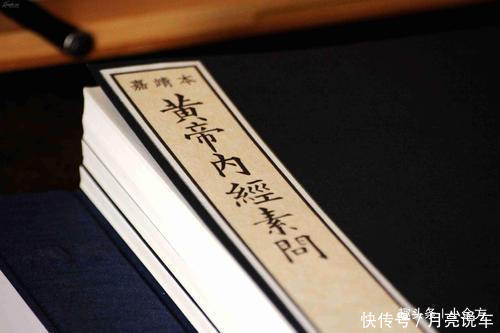 嘉靖本
黄帝内經素問
快传号 / 月亮说车